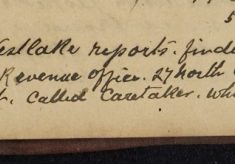 5
estlake reports. finde
Revenue office. 27 north
to. Called Caretaker. wh